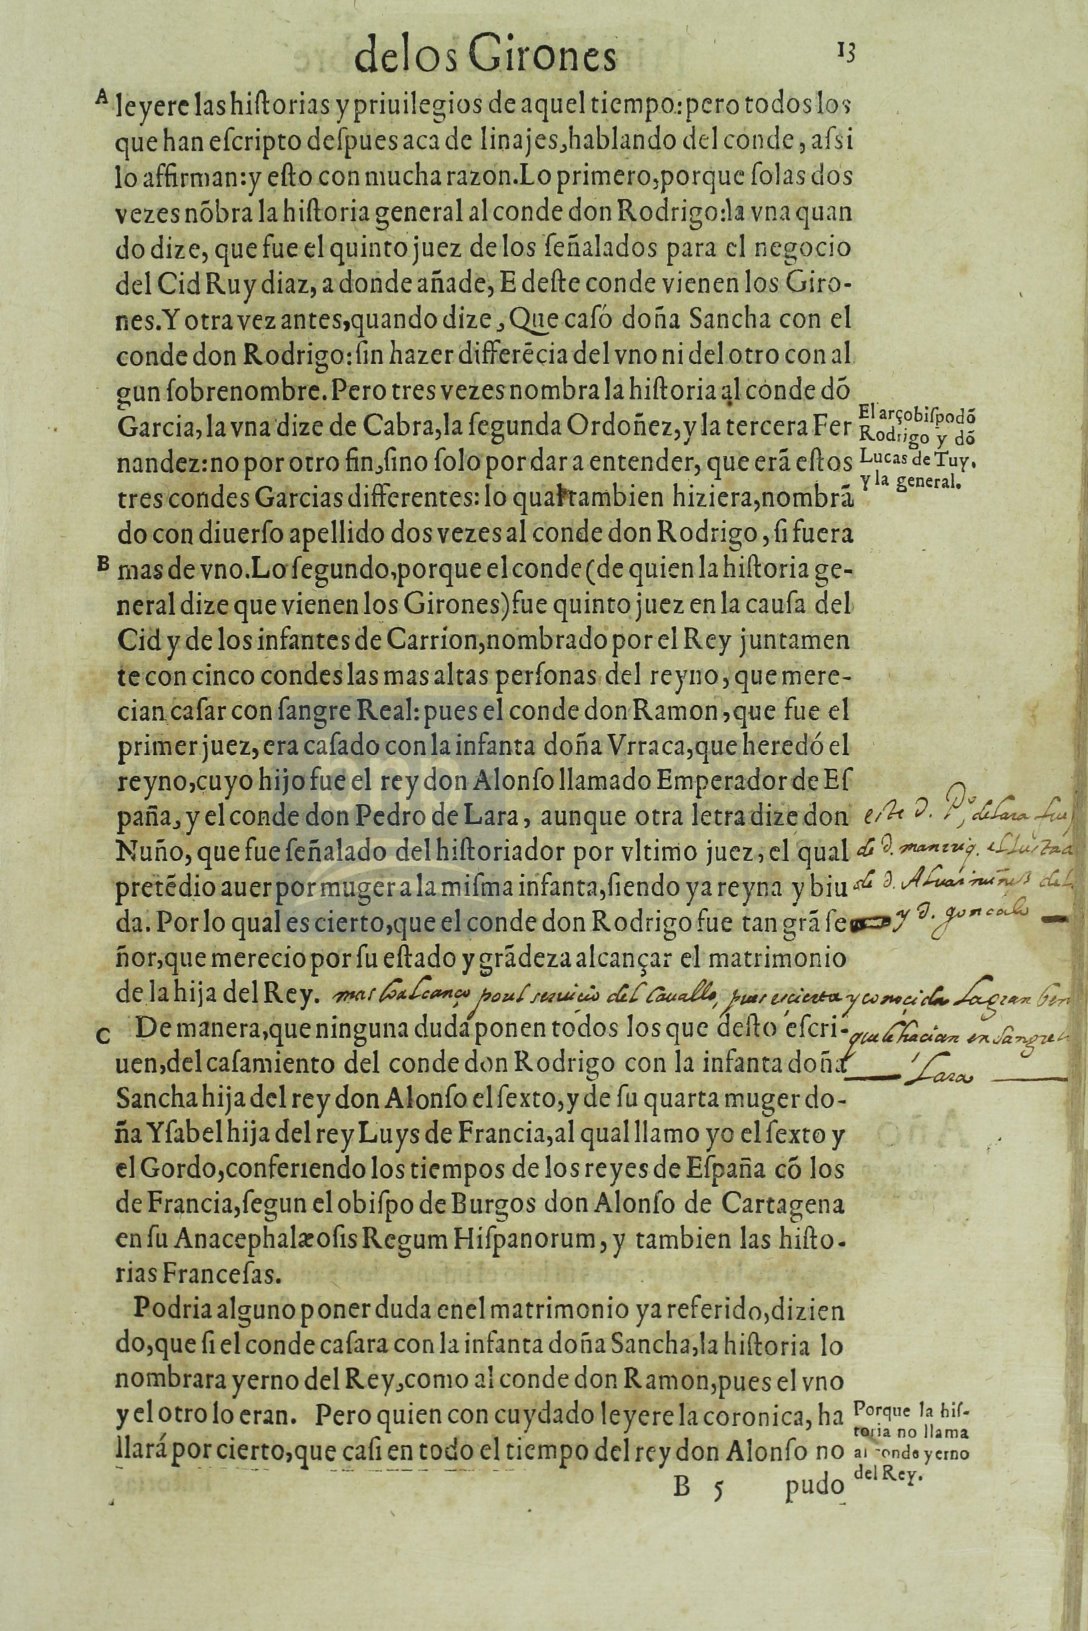 de los Girones
13
A leyere las hiſtorias y priuilegios de aquel tiempo: pero todos los
que han eſcripto deſpues aca de linajes, hablando del conde, aſsi
lo affirman: y eſto con mucha razon. Lo primero, porque ſolas dos
vezes nõbra la hiſtoria general al conde don Rodrigo: la vna quan
do dize, que fue el quinto juez de los ſeñalados para el negocio
del Cid Ruy diaz, a donde añade, E deſte conde vienen los Giro-
nes. Y otra vez antes, quando dize, Que casó doña Sancha con el
conde don Rodrigo: ſin hazer differẽcia del vno ni del otro con al
gun ſobrenombre. Pero tres vezes nombra la hiſtoria al conde dõ
Garcia, la vna dize de Cabra, la ſegunda Ordoñez, y la tercera Fer
nandez: no por otro fin, ſino ſolo por dar a entender, que erã eſtos
tres condes Garcias differentes: lo qual tambien hiziera, nombrã
do con diuerſo apellido dos vezes al conde don Rodrigo, ſi fuera
El arçobiſpo dõ
Rodrigo y dõ
Lucas de Tuy.
y la general.
B mas de vno. Lo ſegundo, porque el conde (de quien la hiſtoria ge-
neral dize que vienen los Girones) fue quinto juez en la cauſa del
Cid y de los infantes de Carrion, nombrado por el Rey juntamen
te con cinco condes las mas altas perſonas del reyno, que mere-
cian caſar con ſangre Real: pues el conde don Ramon, que fue el
primer juez, era caſado con la infanta doña Vrraca, que heredó el
reyno, cuyo hijo fue el rey don Alonſo llamado Emperador de Eſ
paña, y el conde don Pedro de Lara, aunque otra letra dize don
Nuño, que fue ſeñalado del hiſtoriador por vltimo juez, el qual
pretẽdio auer por muger a la miſma infanta, ſiendo ya reyna y biu
da. Por lo qual es cierto, que el conde don Rodrigo fue tan grã ſe
ñor, que merecio por ſu eſtado y grãdeza alcançar el matrimonio
de la hija del Rey.
este d. Pº de Lara
de d. manrriq.
de d. Aluar nuñez de
y d. gonçalo
mas lo alcanço por el seruicio del Cauallo, pues es cierta y conocida la gran
que le hacian en sangre
Lara
C De manera, que ninguna duda ponen todos los que deſto eſcri-
uen, del caſamiento del conde don Rodrigo con la infanta doña
Sancha hija del rey don Alonſo el ſexto, y de ſu quarta muger do-
ña Yſabel hija del rey Luys de Francia, al qual llamo yo el ſexto y
el Gordo, conferiendo los tiempos de los reyes de Eſpaña cõ los
de Francia, ſegun el obiſpo de Burgos don Alonſo de Cartagena
en ſu Anacephalæoſis Regum Hiſpanorum, y tambien las hiſto-
rias Franceſas.
Podria alguno poner duda en el matrimonio ya referido, dizien
do, que ſi el conde caſara con la infanta doña Sancha, la hiſtoria lo
nombrara yerno del Rey, como al conde don Ramon, pues el vno
y el otro lo eran. Pero quien con cuydado leyere la coronica, ha
llará por cierto, que caſi en todo el tiempo del rey don Alonſo no
Porque la hiſ-
toria no llama
al conde yerno
del Rey.
B 5 pudo